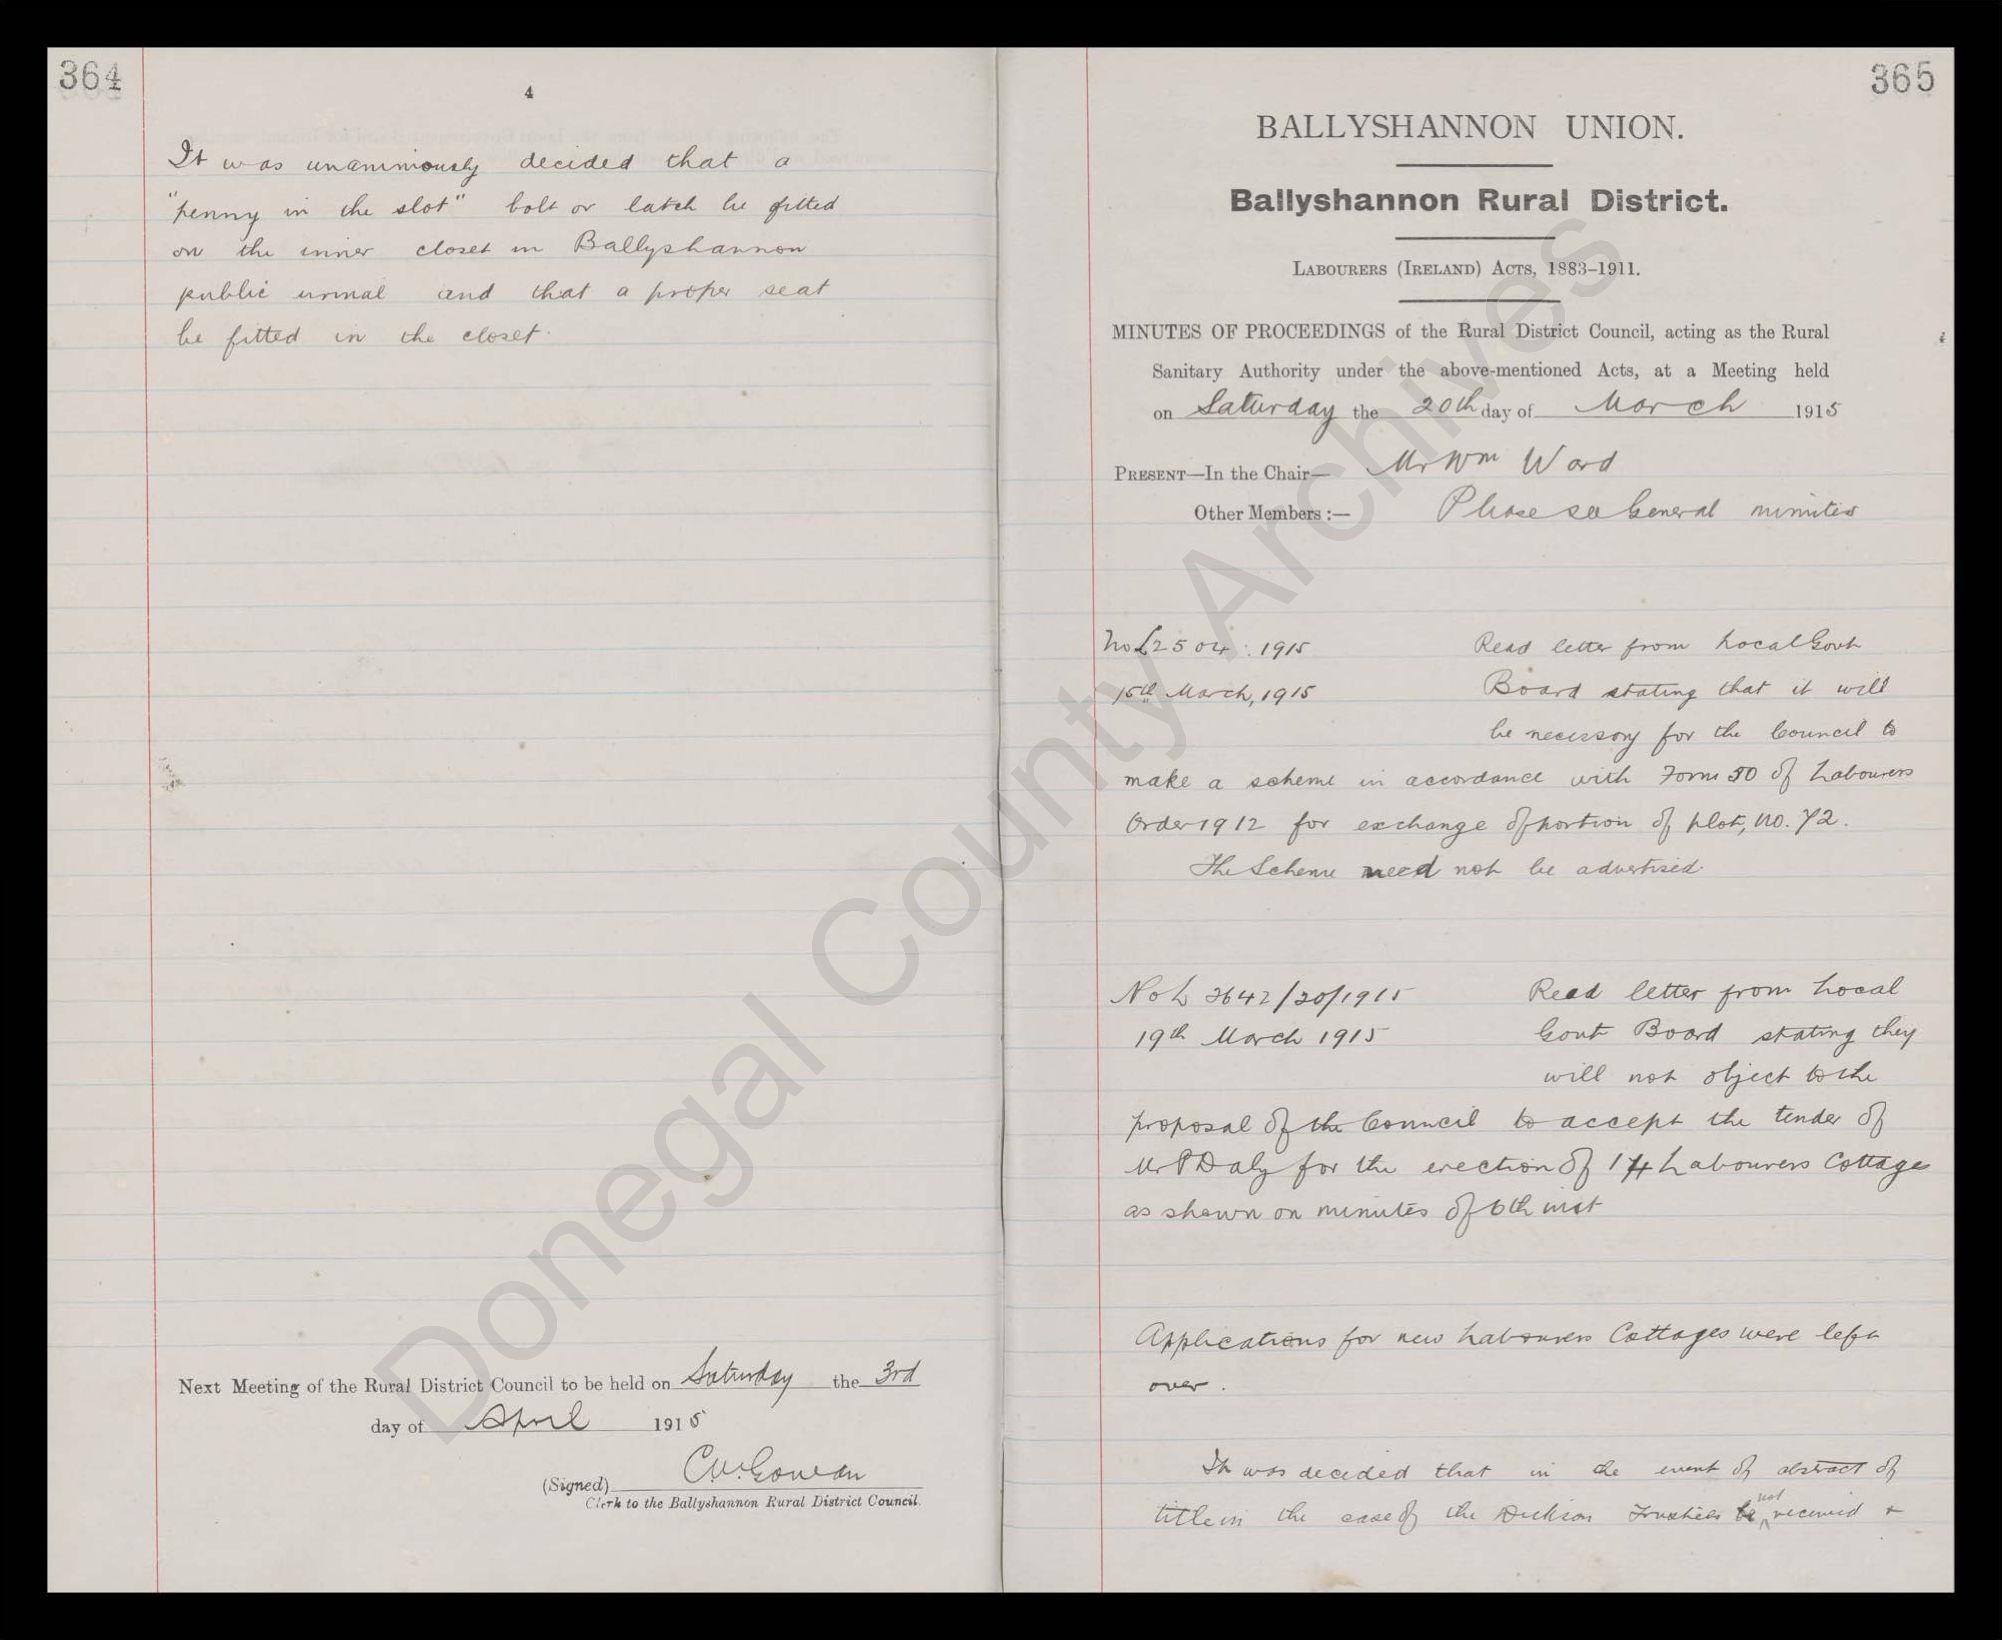 364
4
It was unanimously decided that a
"penny in the slot" bolt or latch be fitted
on the inner closet in Ballyshannon
public urinal and that a proper seat
be fitted in the closet.
Next Meeting of the Rural District Council to be held on Saturday the 3rd
day of April 1915
(Signed)
Clerk to the Ballyshannon Rural District Council.
365
BALLYSHANNON UNION.
Ballyshannon Rural District.
LABOURERS (IRELAND) ACTS, 1883–1911.
MINUTES OF PROCEEDINGS of the Rural District Council, acting as the Rural
Sanitary Authority under the above-mentioned Acts, at a Meeting held
on Saturday the 20th day of March 1915
PRESENT—In the Chair— Mr Wm Ward
Other Members :— Please see General minutes
1915 Read letter from Local Govt
15th March, 1915 Board stating that it will
be necessary for the Council to
make a scheme in accordance with Form 50 of Labourers
Order 1912 for exchange of portion of plot, no. 72.
The Scheme need not be advertised.
No L 2642/20/1915 Read letter from Local
19th March 1915 Govt Board stating they
will not object to the
proposal of the Council to accept the tender of
Mr P Daly for the erection of 14 Labourers Cottage
as shewn on minutes of 6th inst
Applications for new Labourers Cottages were left
over.
It was decided that in the event of abstract of
title in the case of the Dickson Trustees be not received &
Donegal County Archives